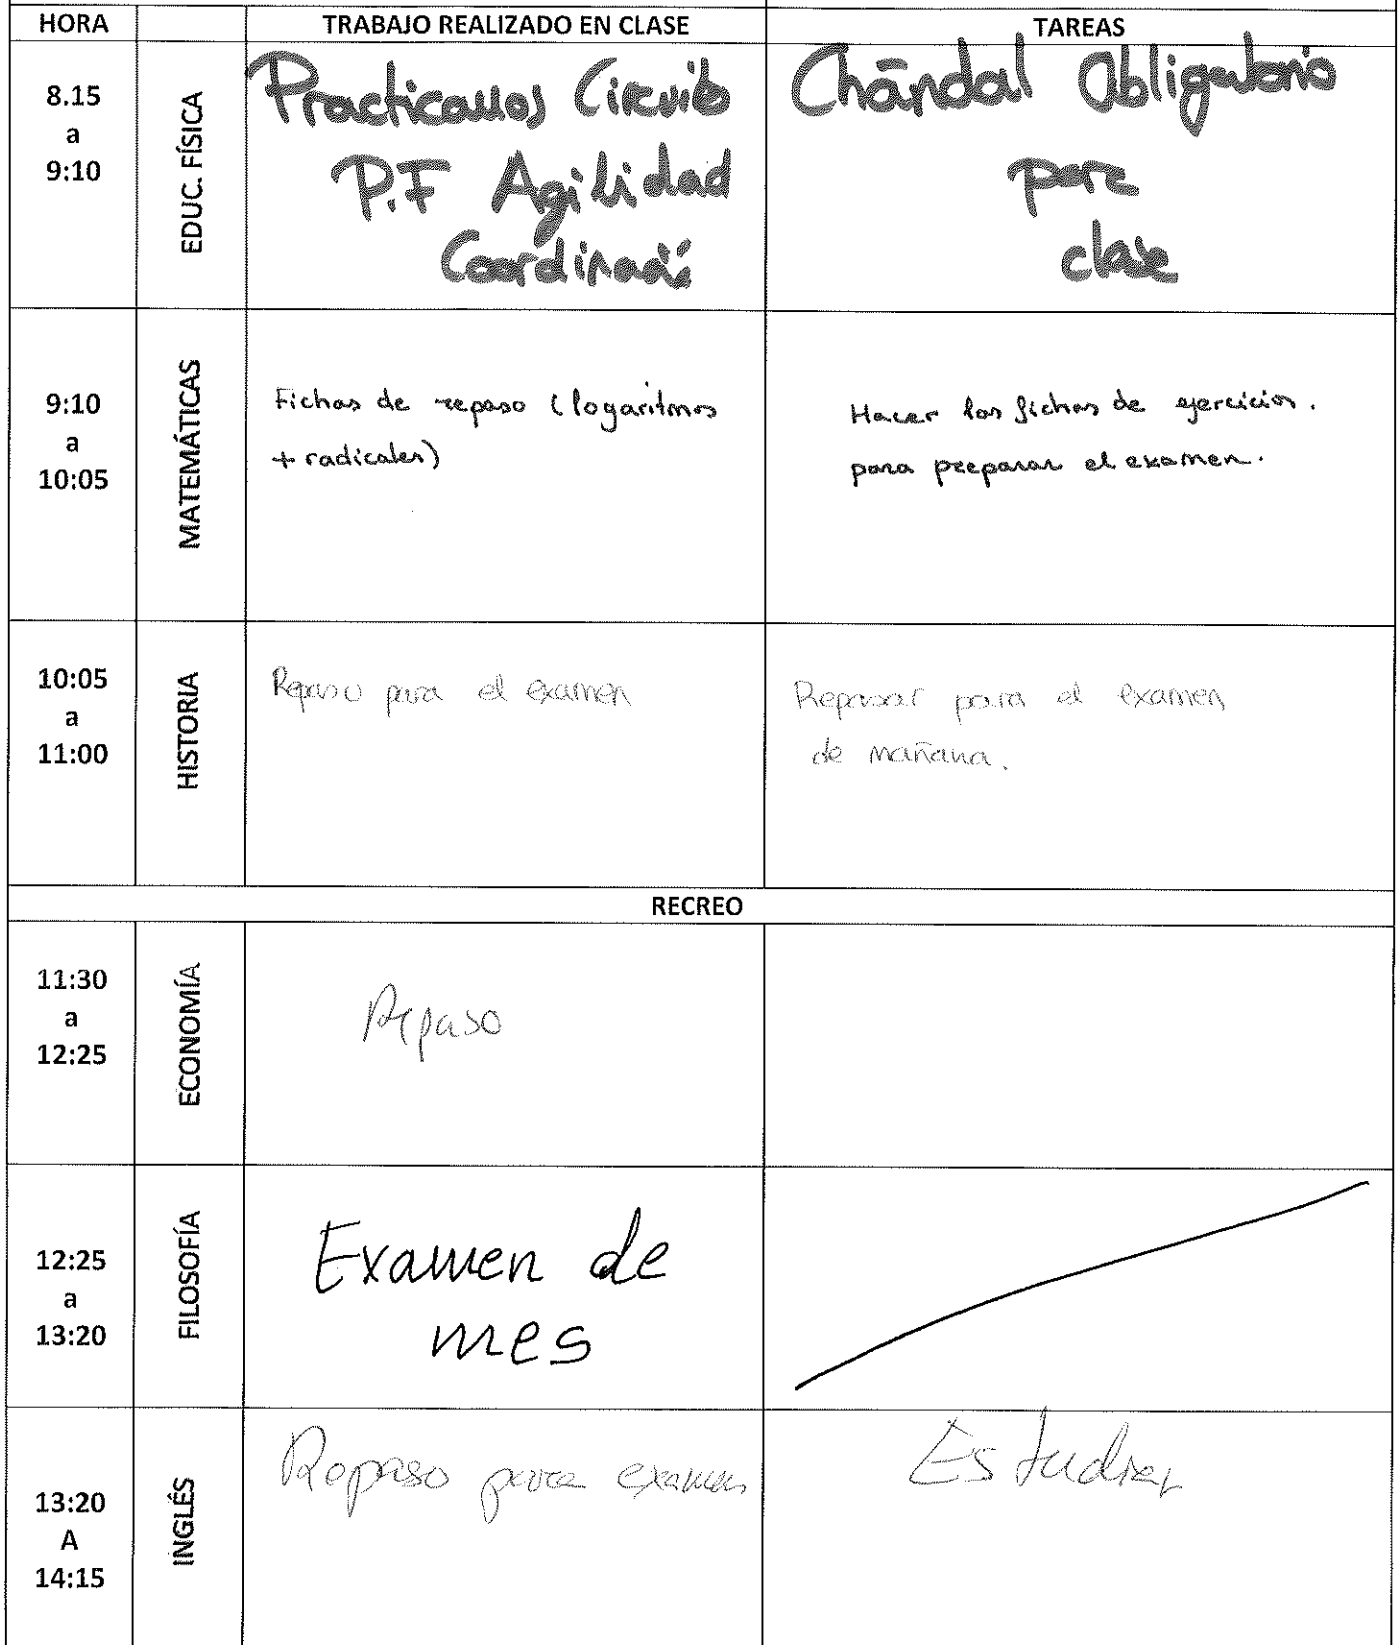 HORA TRABAJO REALIZADO EN CLASE TAREAS
8.15
a
9:10
EDUC. FÍSICA
Practicamos Circuito
P.F Agilidad
Coordinació
Chándal Obligatorio
para
clase
9:10
a
10:05
MATEMÁTICAS
Fichas de repaso (logaritmos
+ radicales)
Hacer las fichas de ejercicios.
para preparar el examen.
10:05
a
11:00
HISTORIA
Repaso para el examen
Repasar para el examen
de mañana.
RECREO
11:30
a
12:25
ECONOMÍA
Repaso
12:25
a
13:20
FILOSOFÍA
Examen de
mes
13:20
A
14:15
INGLÉS
Repaso para examen
Estudiar